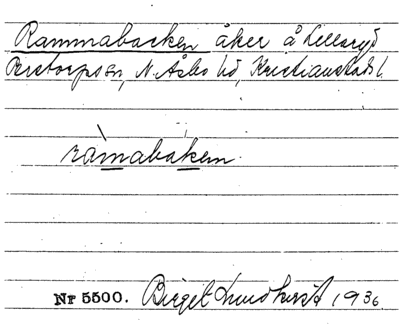 Rammabacken åker å Lillaryd
Perstorps sn, N. Åsbo hd, Kristianstads l.
ràmabakem.
Nr 5500. Birgit Lundkvist 1936